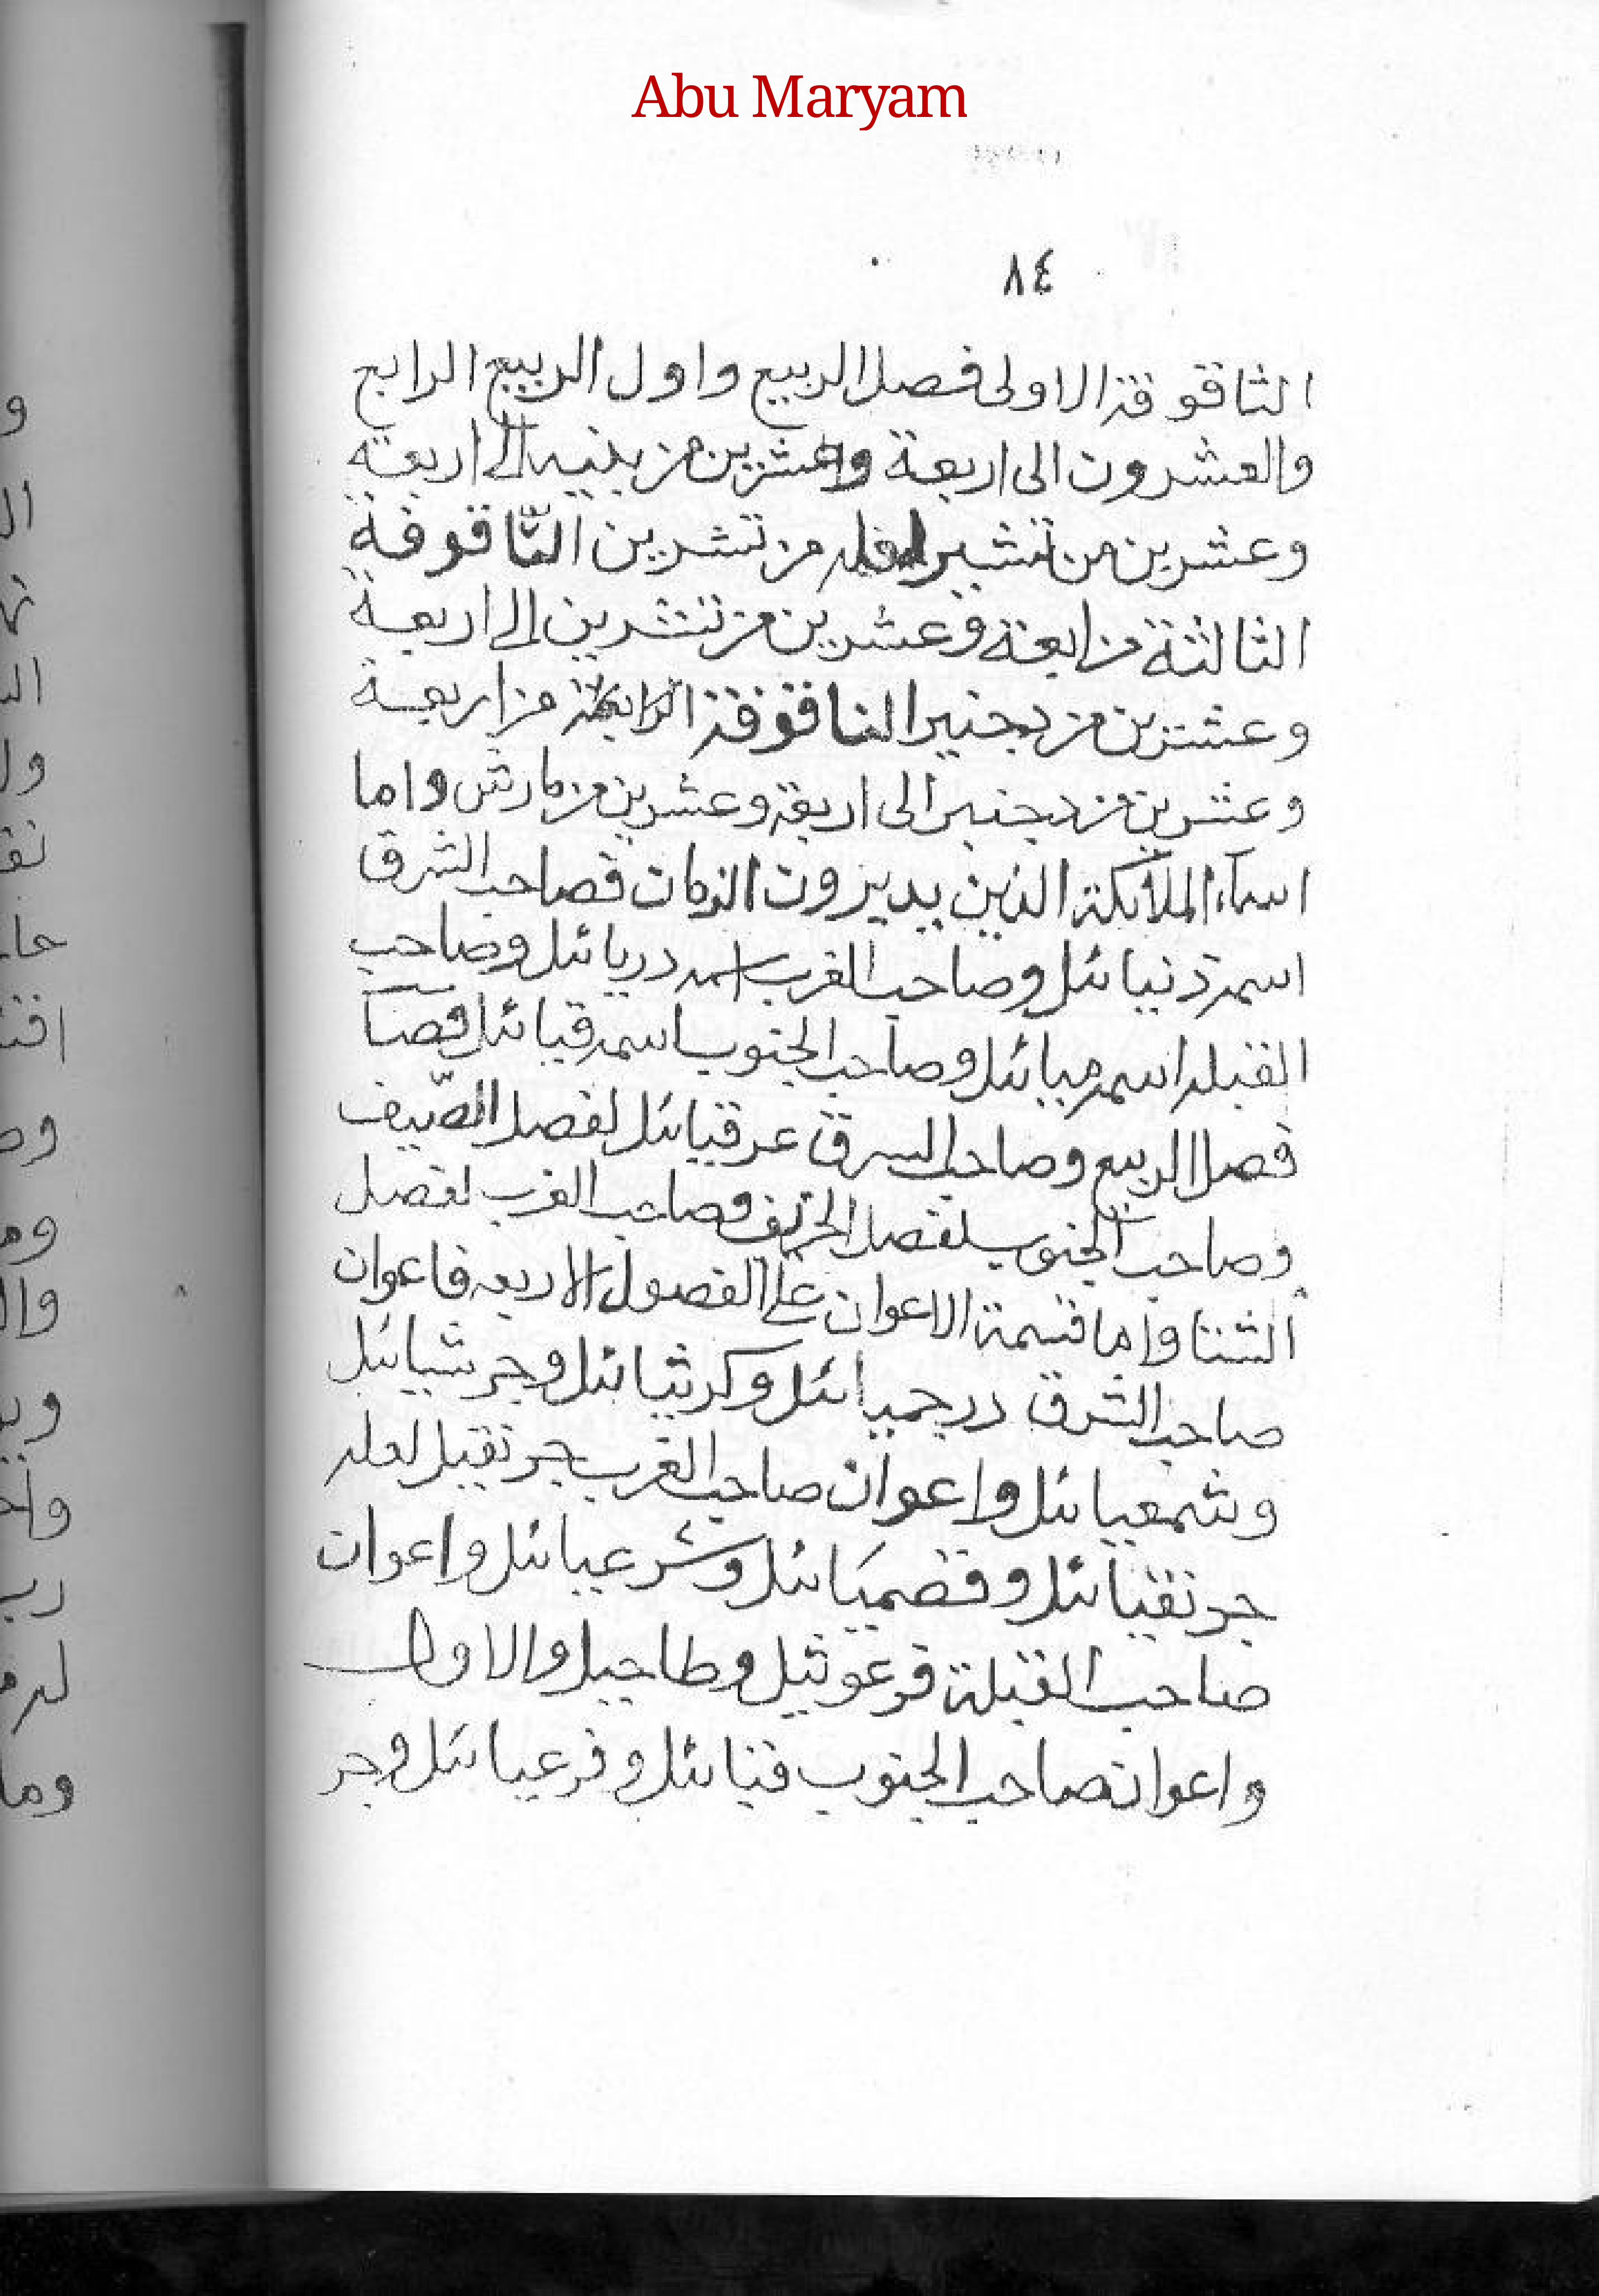 Abu Maryam
٨٤
الثاقوفة الاولى فصل الربيع واول الربيع الرابع
والعشرون الى اربعة وعشرين من ينيه الى اربعة
وعشرين من من تشرين الثاقوفة
الثالثة من ابعة وعشرين من تشرين الى اربعة
وعشرين من دجنير الناقوفة الرابعة من اربعة
وعشرين من دجنير الى اربعة وعشرين من مارش واما
اسماء الملائكة الذين يديرون الزمان فصاحب الشرق
اسمه دنيائل وصاحب الغرب اسمه دريائل وصاحب
القبله اسمه ميبائل وصاحب الجنوب اسمه قيائل فصا
فصل الربيع وصاحب السرق عرقيائل لفصل الصّييف
وصاحب الجنوب لفصل الخريف وصاحب الغرب لفصل
الشتا واما قسمة الاعوان على الفصول الاربعه فاعوان
صاحب الشرق درحميائل وكرثيائل وجرشيائل
وشمعيائل واعوان صاحب الغرب جرتقيل لعله
جرتقيائل وقضميَائل وشرعيائل واعوان
صاحب القبلة فرعوئيل وطاحيل والاول
واعوان صاحب الجنوب قنيائل وفرعيائل وجر